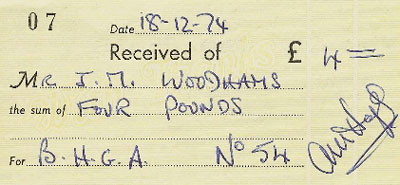 07 Date 18-12-74
Received of £ 4 =
MR J.M. WOODHAMS
the sum of FOUR POUNDS
For B.H.G.A. No 54